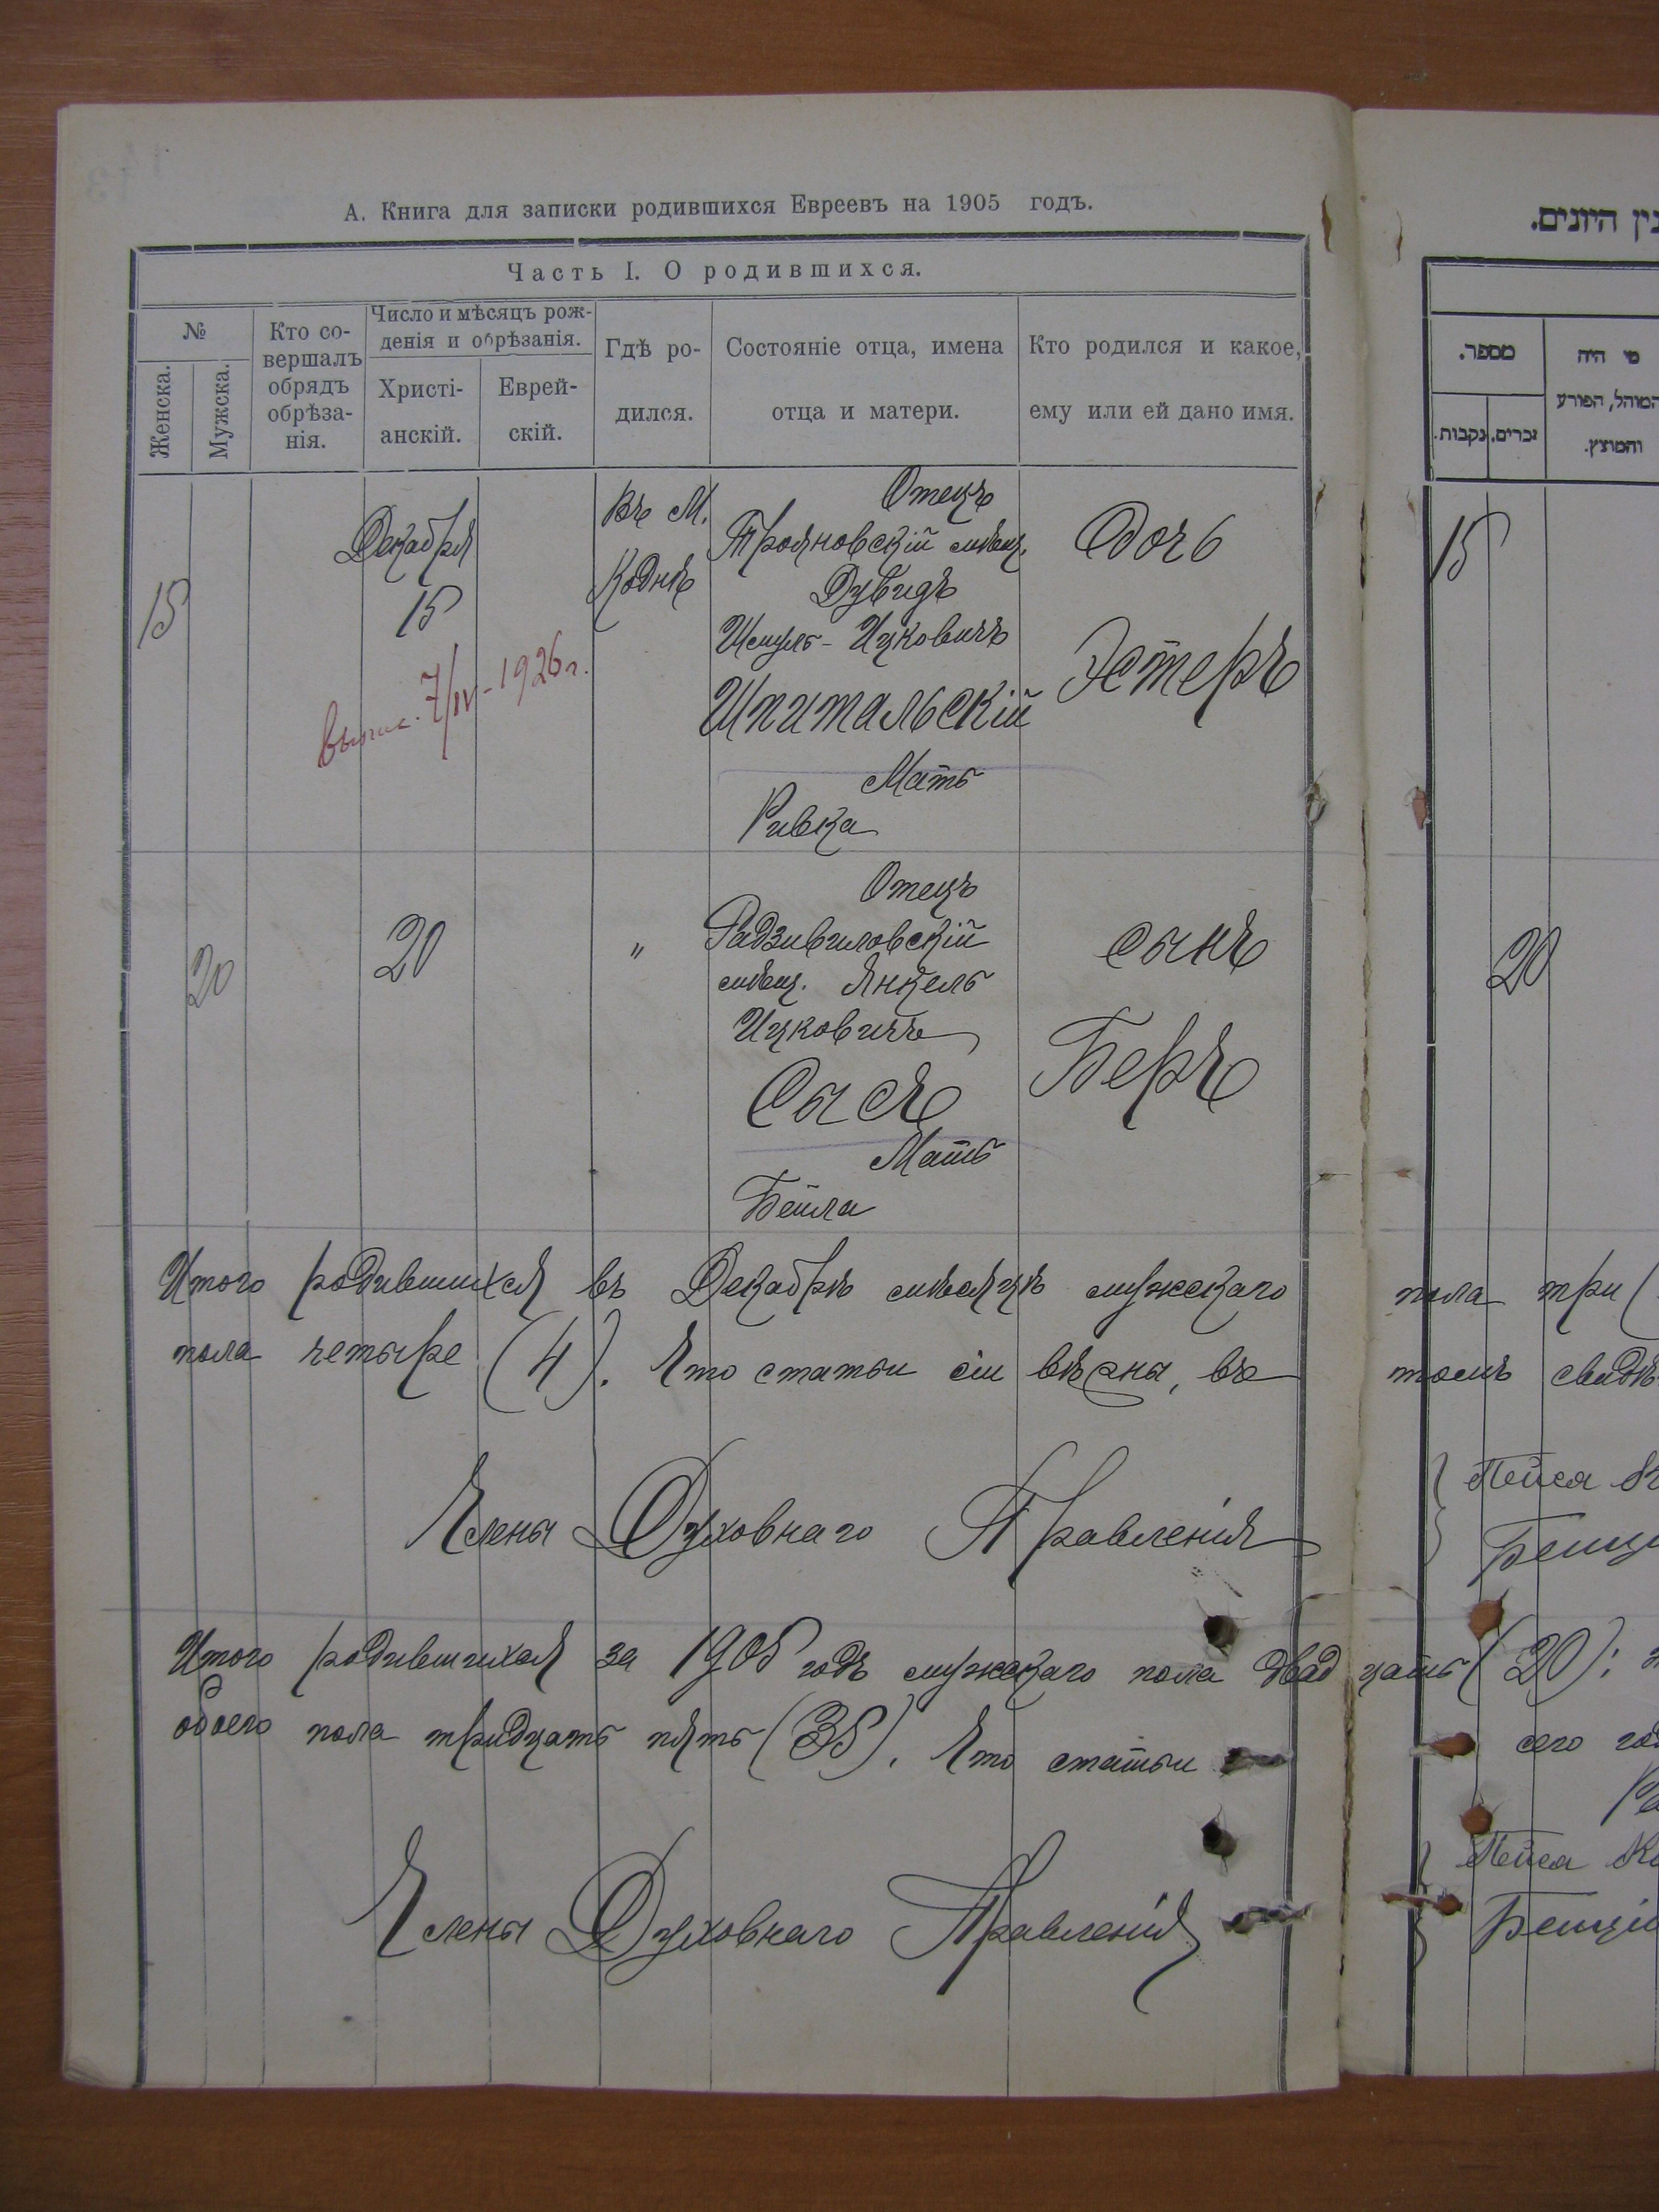 А. Книга для записки родившихся Евреевъ на 1905 годъ.
Часть I. О родившихся.
№
Женска.
Мужска.
Кто со-
вершалъ
обрядъ
обрѣза-
нія.
Число и мѣсяцъ рож-
денія и обрѣзанія.
Христі-
анскій.
Еврей-
скій.
Гдѣ ро-
дился.
Состояніе отца, имена
отца и матери.
Кто родился и какое,
ему или ей дано имя.
15
Декабря
15
выпис. 7/IV-1926 г.
Въ М.
Коднѣ
Отецъ
Трояновскій мѣщ.
Дувидъ
Шмуль-Ицковичъ
Шпитальскій
Мать
Ривка
Дочь
Эстеръ
20
20
"
Отецъ
Радзивиловскій
мѣщ. Янкель
Ицковичъ
Сысъ
Мать
Бейла
сынъ
Беръ
Итого родившихся въ Декабрѣ мѣсяцѣ мужескаго
пола четыре (4). Что статьи сіи вѣрны, въ
Члены Духовнаго Правленія
Итого родившихся за 1905 годъ мужескаго пола двадцать (20):
обоего пола тридцать пять (35). Что статьи
Члены Духовнаго Правленія
נין היונים.
מספר.
נקבות.
זכרים.
מי היה
המוהל, הפורע
והמוצץ.
15
20
пола три (
томъ свидѣ
Пейса
сего
Пейса